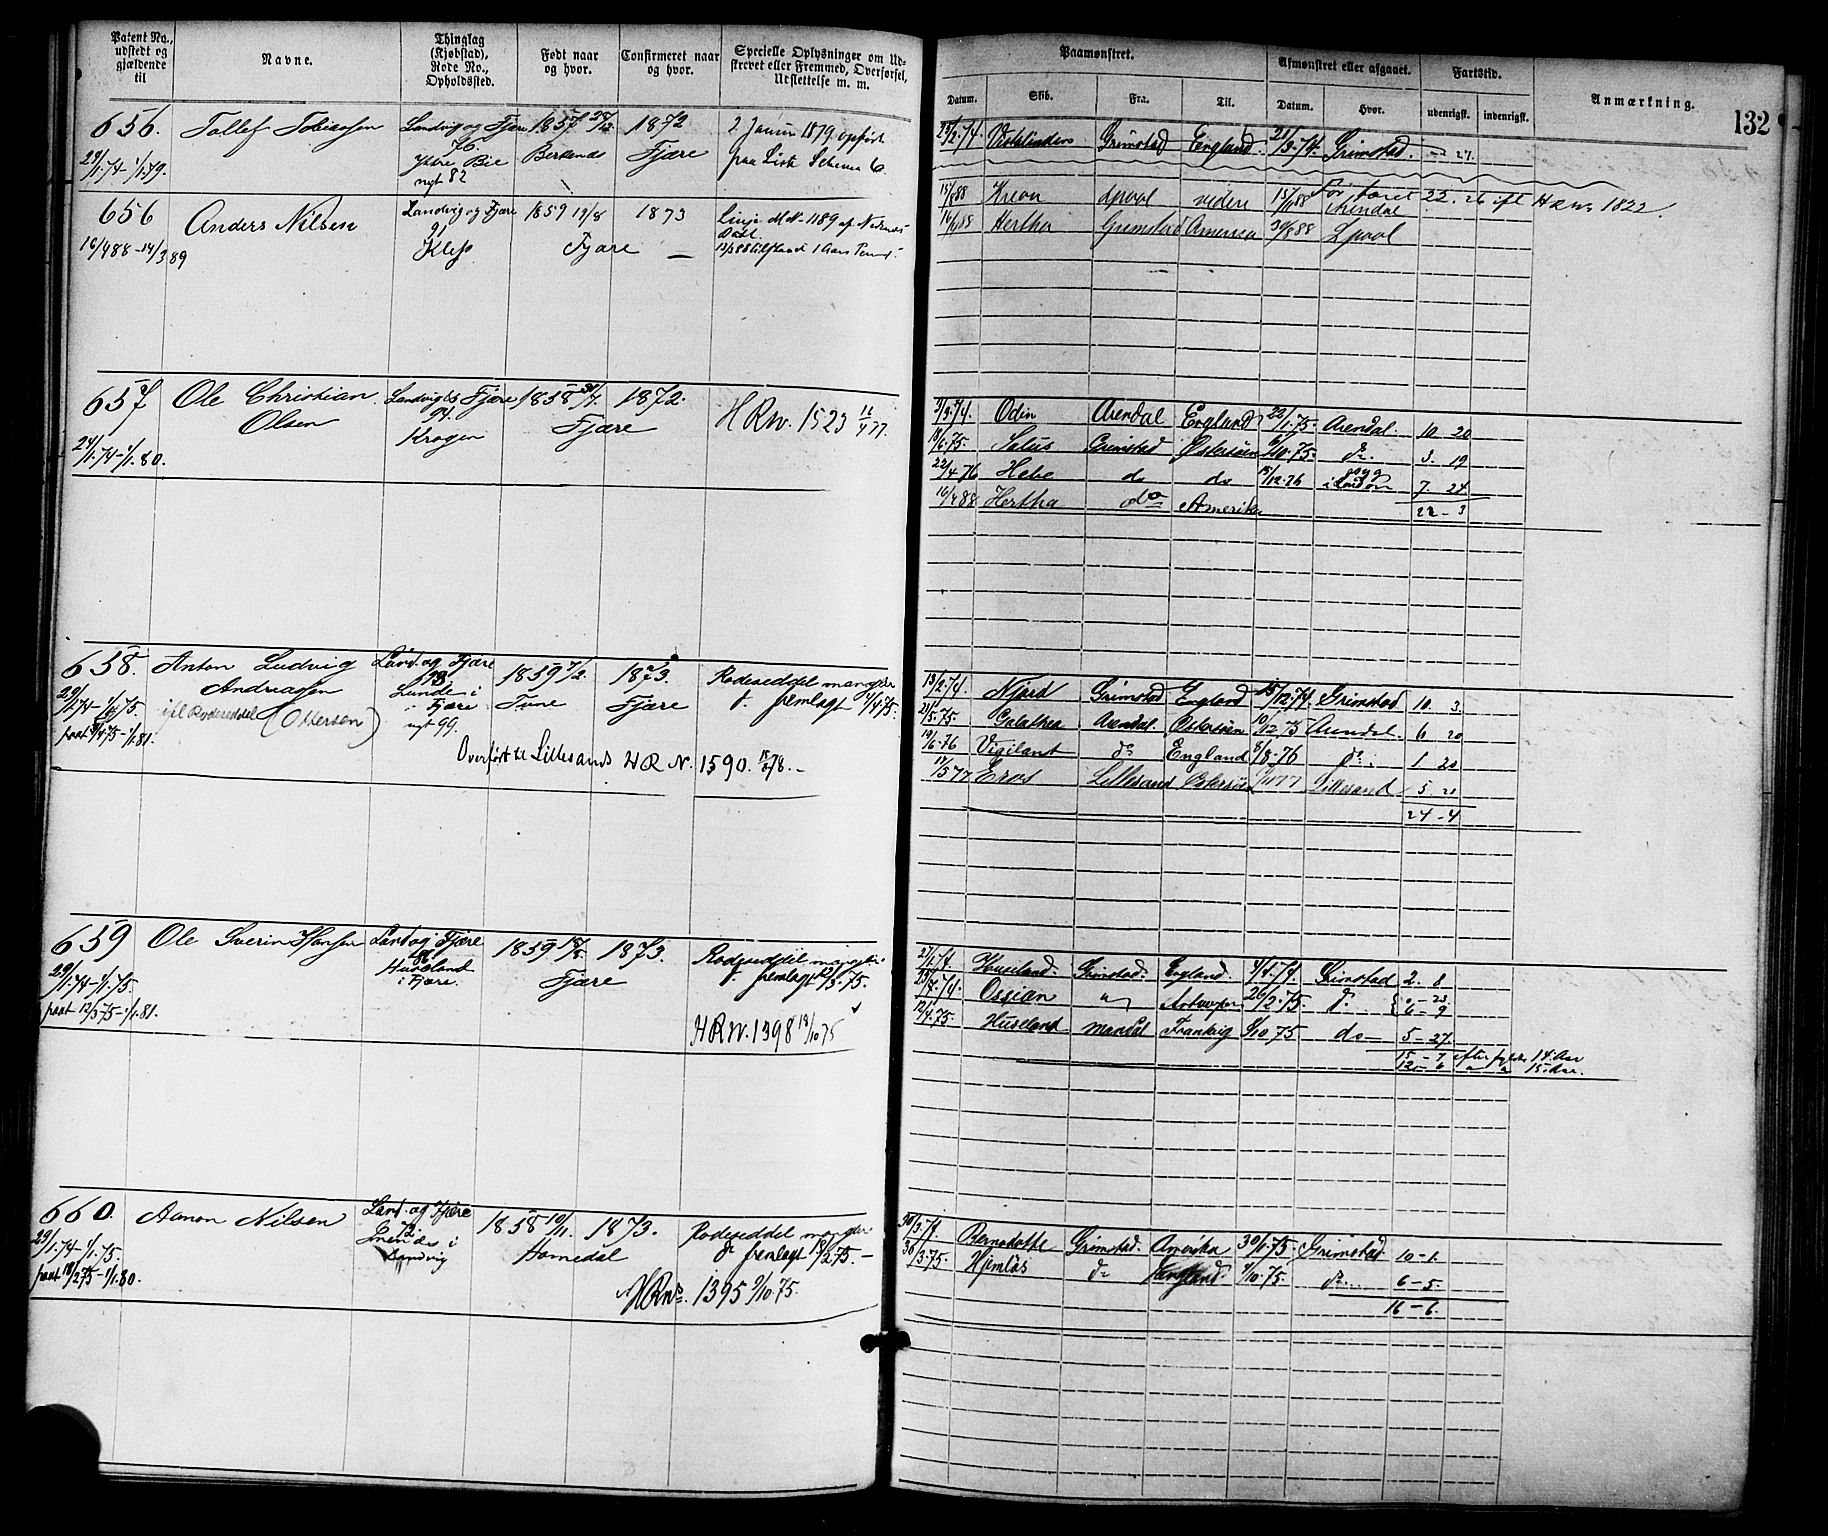 Patent No., udstedt og gjældende til
Navne.
Thinglag (Kjøbstad), Rode No., Opholdssted.
Født naar og hvor.
Confirmeret naar og hvor.
Specielle Oplysninger om Udskrevet eller Fremmed, Overførsel, Udslettelse m. m.
656. Tollef Tobiassen Landvig og Fjære 1857 1872 2 Januar 1879 opført
29/1.74 - 1/1.79. 76. Ytre Bie Birkenæs Fjære paa Liste Schema 6.
nyt 82
656 Anders Nilsen Landvig og Fjære 1859 19/8 1873
16/4 88 - 14/3 89 91 Fjære —
657 Ole Christian Olsen Landvig & Fjære 1858 31/7. 1872. HRNo. 1523 11/4 77.
24/1.74 - 1/1.80. 94. Krogen Fjære
658. Anton Ludvig Andreassen Land. og Fjære 1859 7/2. 1873. Rodeseddel mangler
29/1.74 - 1/1.75. 98. Lunde i Fjære Tune Fjære fremlagt 9/4.75.
ifl Rodeseddel (Ottersen) nyt 99.
paat 9/4.75 - 1/1.81.
Overført til Lillesands HRN. 1590.
659 Ole Sverin Hansen Land og Fjære 1859 1873. Rodeseddel mangler
29/1.74 - 1/1.75. Huseland i Fjære. Fjære fremlagt 12/3.75.
paat 12/3 75 - 1/1.81.
HRN. 1398 18/10 75
660. Aanon Nilsen Land. og Fjære 1858 10/11. 1873. Rodeseddel mangler
29/1.74 - 1/1.75. 72. i Landvig Homedal fremlagt 18/2.75. —
paat 18/2 75 - 1/1.80.
HRNo. 1395 9/10.75.
Paamønstret.
Afmønstret eller afgaaet.
Fartstid.
Anmærkning.
132
Datum. Skib. Fra. Til. Datum. Hvor. udenrigsk. indenrigsk.
Grimstad England 21/3.74. Grimstad. - 27.
15/1 88 Kreon Lpool videre 15/1 88 Arendal 22. 26 ifl HRNo 1822.
16/4 88 Hertha Grimstad Amerika 30/8 88 Lpool
3/3.74. Odin Arendal England 22/1.75. Arendal. 10. 20
18/6.75. Salus Grimstad Østersøen 6/10.75. do. 3. 19
22/4.76 Hebe do do 15/12.76 i London 7. 24
16/4 88 Hertha do Amerika 22 - 3
13/2.74. Njord Grimstad England 15/12.74. Grimstad 10. 3.
21/5.75. Galathea Arendal. Østersøen 10/12 75 Arendal. 6 20
10/6.76 Vigilant do England 8/8.76 do. 1 20
17/5 77 Eros Lillesand Østersøen Lillesand 5 21
24 - 4
27/1.74. Huseland. Grimstad. England. 4/4.74. Grimstad 2. 8
23/8.74. Ossian " Antwerpen 26/2.75. do.
6 - 9
12/4.75. Huseland Mandal Frankrig 9/10 75 do — 5 - 27
15 - 7 efter fyldte 14. Aar
12 - 6 " " 15. Aar.
30/3.74. Bernadotte Grimstad. Amerika 30/1.75. Grimstad 10 - 1.
30/3.75. Hjemlås do England. 9/10.75. do. 6 - 5.
16 - 6.